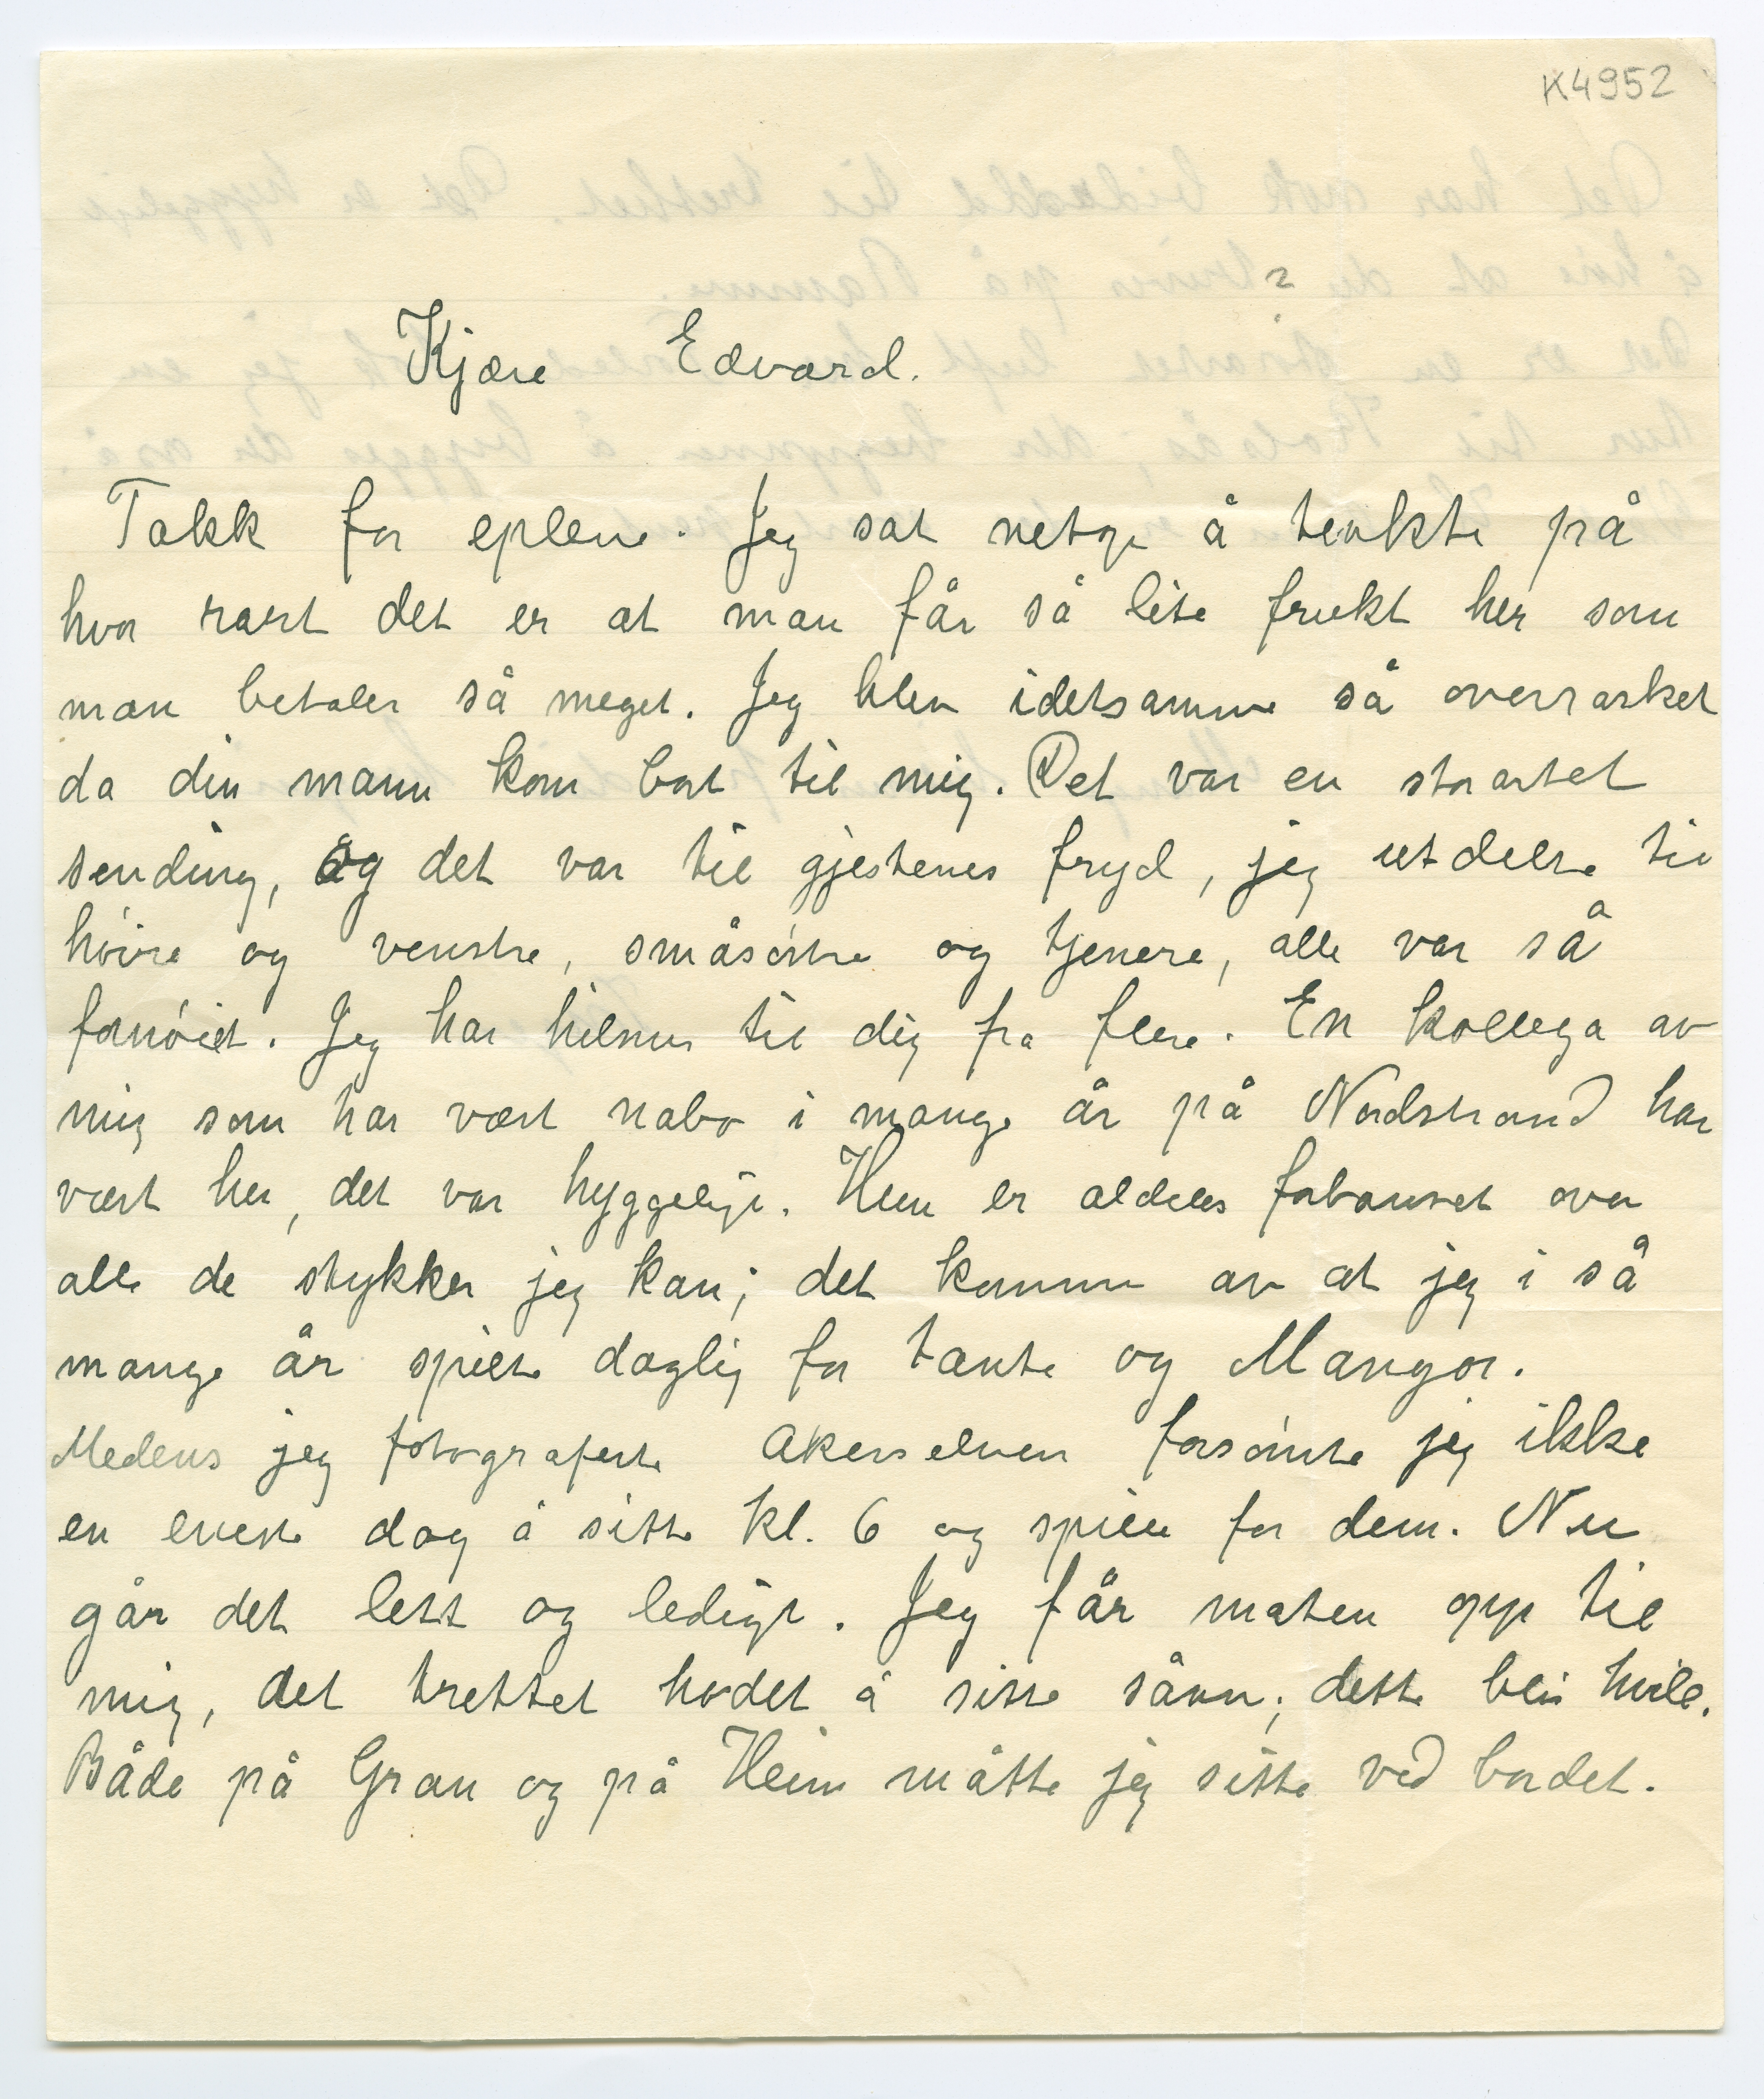 K4952
Kjære Edvard.
Takk for eplene. Jeg sat netop å tenkte på
hvor rart det er at man får så lite frukt her som
man betaler så meget. Jeg blev idetsamme så overrasket
da din mann kom bort til mig. Det var en storartet
sending, og det var til gjestenes fryd, jeg utdelte til
høire og venstre, småsøstre og tjenere, alle var så
fornøiet. Jeg har hilsner til dig fra flere. En kollega av
mig som har vært nabo i mange år på Nordstrand har
vært her, det var hyggeligt. Hun er aldeles forbauset over
alle de stykker jeg kan; det kommer av at jeg i så
mange år spilte daglig for tante og Mangor.
Medens jeg fotograferte Akerselven forsømte jeg ikke
en eneste dag å sitte kl. 6 og spille for dem. Nu
går det lett og ledigt. Jeg får maten opp til
mig, det trettet hodet å sitte sånn; dette blir hvile.
Både på Gran og på Heim måtte jeg sitte ved bordet.